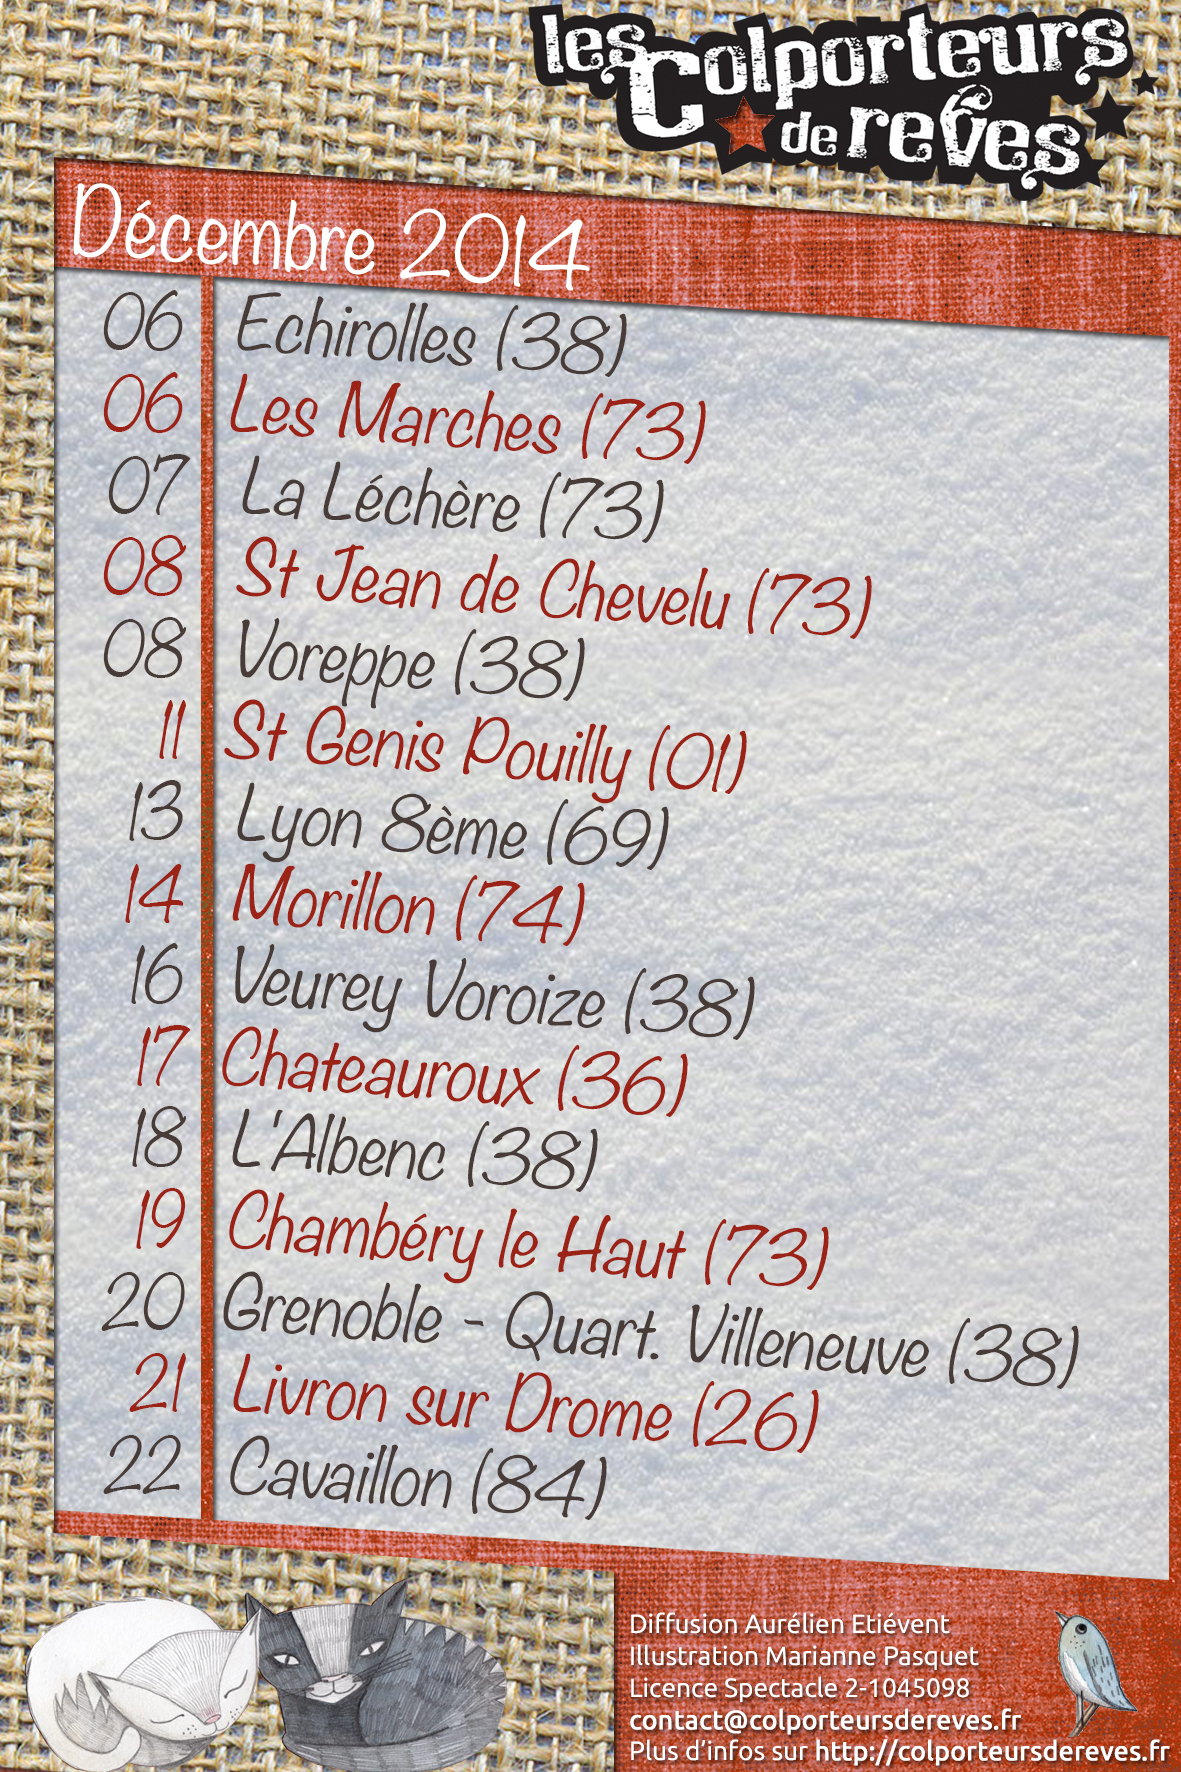 les Colporteurs
de reves
Décembre 2014
06 Echirolles (38)
06 Les Marches (73)
07 La Léchère (73)
08 St Jean de Chevelu (73)
08 Voreppe (38)
11 St Genis Pouilly (01)
13 Lyon 8ème (69)
14 Morillon (74)
16 Veurey Voroize (38)
17 Chateauroux (36)
18 L'Albenc (38)
19 Chambéry le Haut (73)
20 Grenoble - Quart. Villeneuve (38)
21 Livron sur Drome (26)
22 Cavaillon (84)
Diffusion Aurélien Etiévent
Illustration Marianne Pasquet
Licence Spectacle 2-1045098
contact@colporteursdereves.fr
Plus d'infos sur http://colporteursdereves.fr